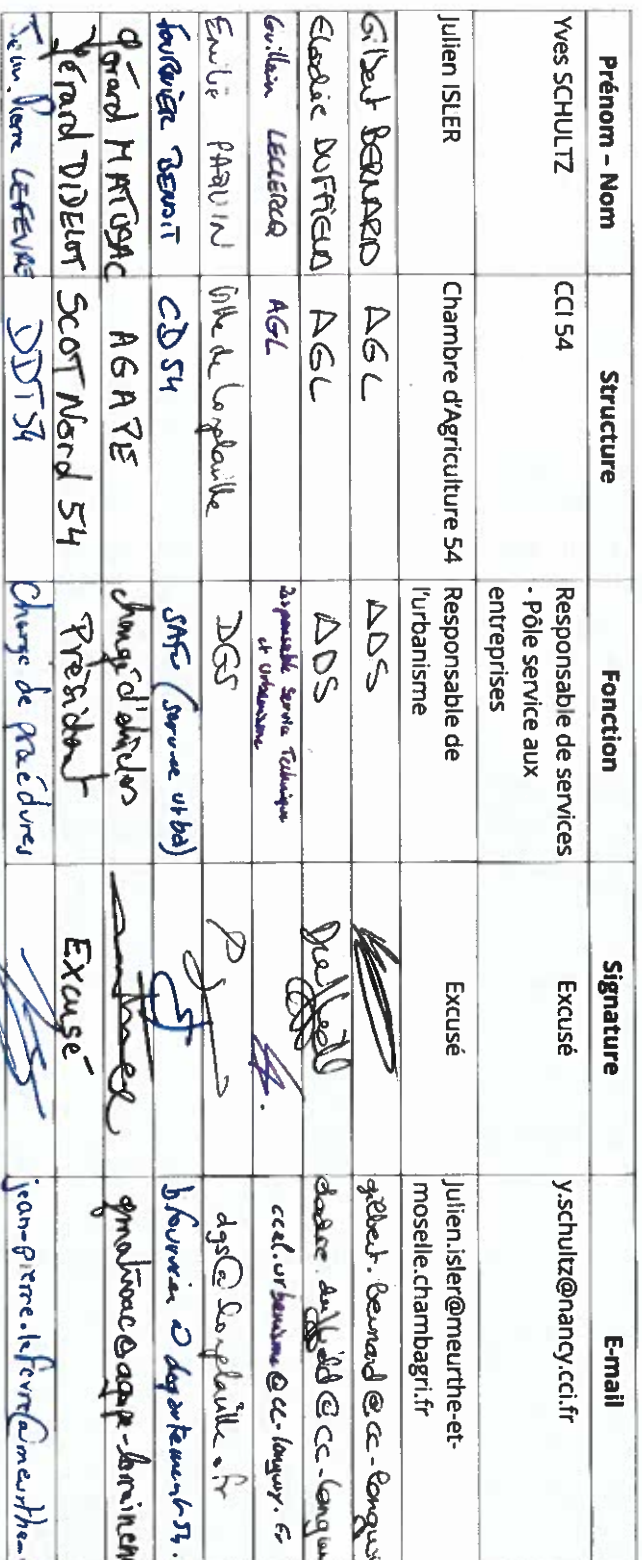 Prénom - Nom Structure Fonction Signature E-mail
Yves SCHULTZ CCI 54 Responsable de services - Pôle service aux entreprises Excusé y.schultz@nancy.cci.fr
Julien ISLER Chambre d'Agriculture 54 Responsable de l'urbanisme Excusé julien.isler@meurthe-et-moselle.chambagri.fr
Gilbert BERNARD AGL ADS gilbert.bernard@cc-longwy
Elodie DUFFIELD AGL ADS elodie.duffield@cc-longwy
Guillain LECLERCQ AGL Responsable Service Technique et Urbanisme ccal.urbanisme@cc-longwy.fr
Emilie PAQUIN Ville de Longlaville DGS dgs@longlaville.fr
FOURNIER BENOIT CD54 SAFU (service urba) bfournier@departement54.
Gérard MATUSAC AGAPE chargé d'études gmatusac@agape-lorrainen
Gérard DIDELOT SCOT Nord 54 Président Excusé
Jean-Pierre LEFEVRE DDT54 Chargé de procédures jean-pierre.lefevre@meurthe-